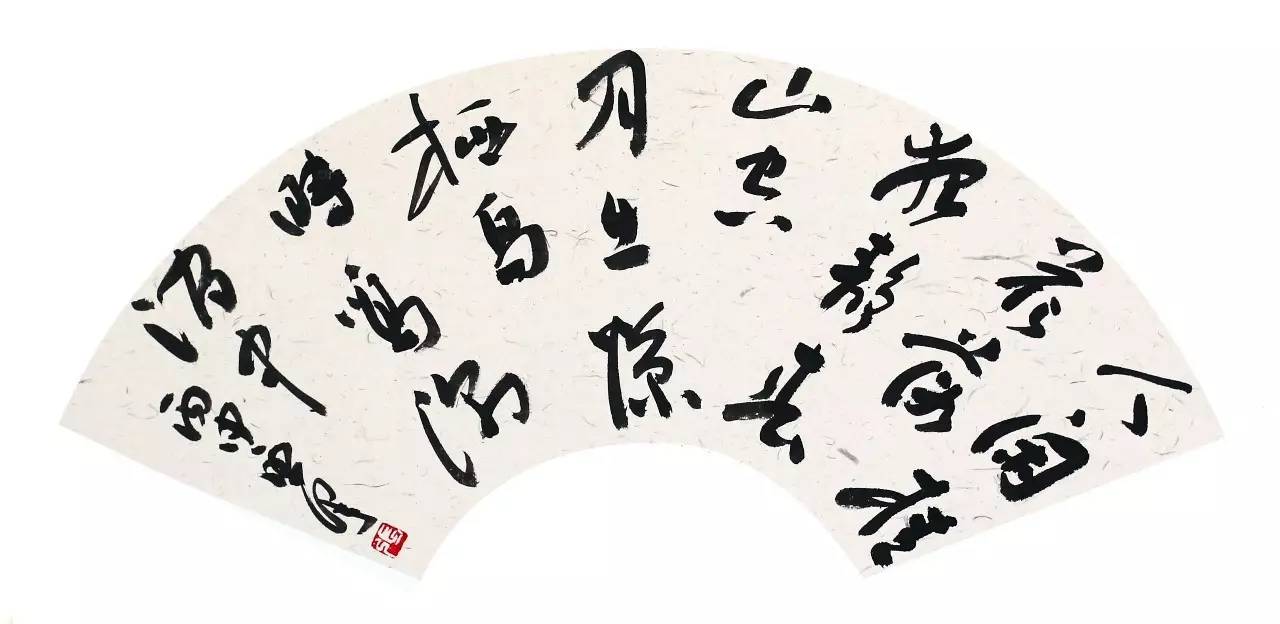 人闲桂
花落
夜静春
山空
月出惊
栖鸟
时鸣深
涧中